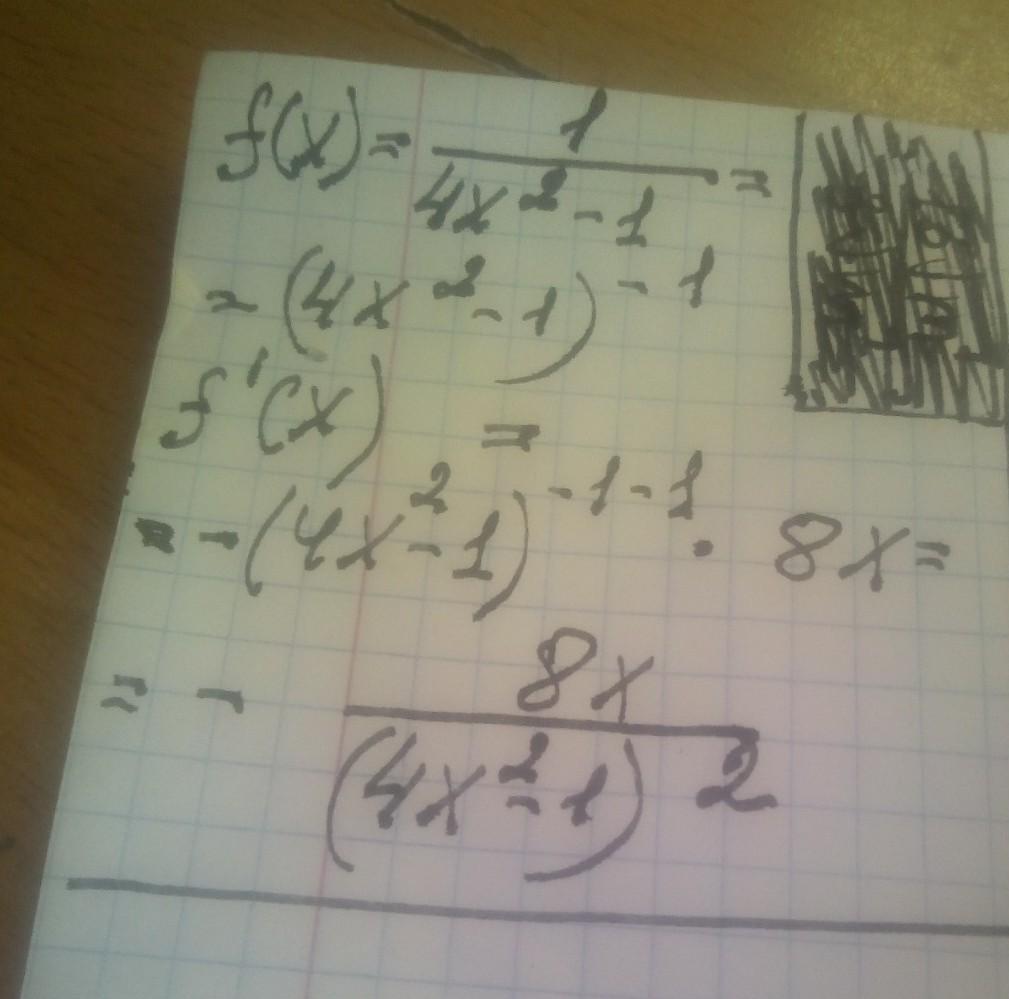 f(x) = 1/(4x² - 1) =
= (4x² - 1)⁻¹
f'(x) =
= -(4x² - 1)⁻¹⁻¹ · 8x =
= - 8x/(4x² - 1)²